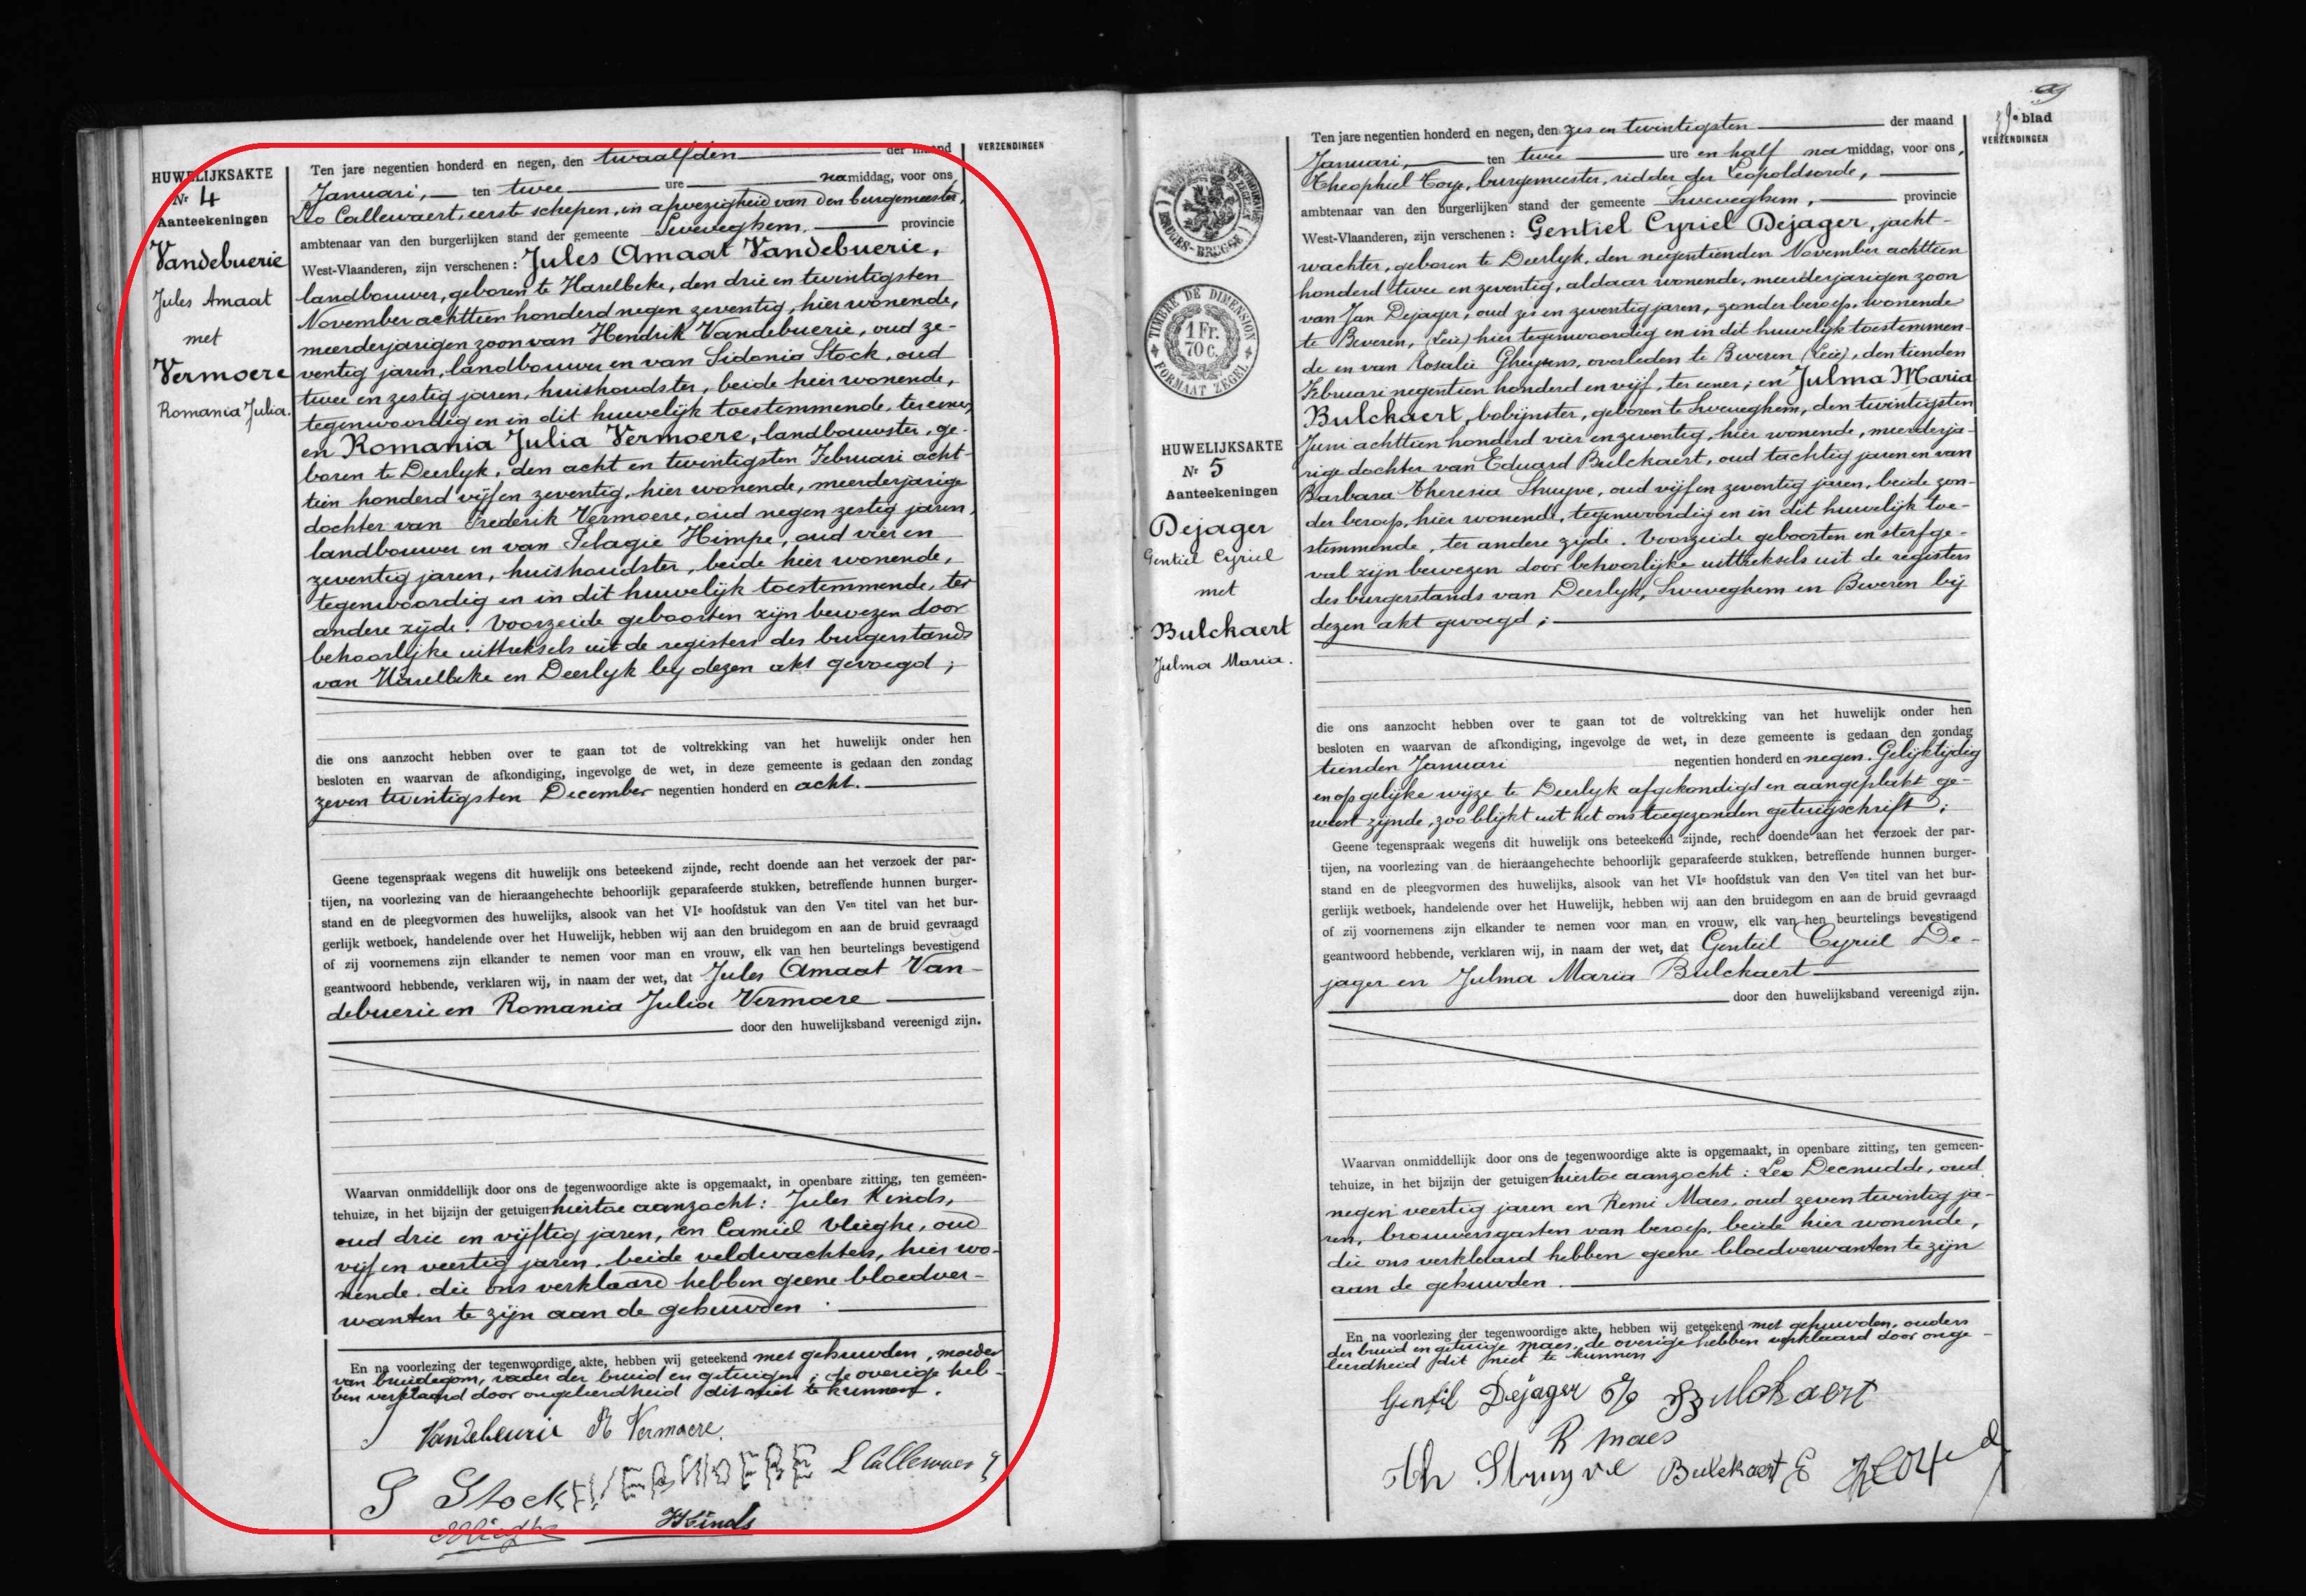 HUWELIJKSAKTE
Nr 4
Aanteekeningen
Vandebuerie
Jules Amaat
met
Vermoere
Romania Julia.
VERZENDINGEN
Ten jare negentien honderd en negen, den twaalfden der maand
Januari, ten twee ure namiddag, voor ons
Leo Callewaert, eerste schepen, in afwezigheid van den burgemeester,
ambtenaar van den burgerlijken stand der gemeente Sweveghem, provincie
West-Vlaanderen, zijn verschenen: Jules Amaat Vandebuerie,
landbouwer, geboren te Harelbeke, den drie en twintigsten
November achttien honderd negen zeventig, hier wonende,
meerderjarigen zoon van Hendrik Vandebuerie, oud ze-
ventig jaren, landbouwer en van Sidonia Stock, oud
twee en zestig jaren, huishoudster, beide hier wonende,
tegenwoordig en in dit huwelijk toestemmende, ter eener,
en Romania Julia Vermoere, landbouwster, ge-
boren te Deerlyk, den acht en twintigsten Februari acht-
tien honderd vijf en zeventig, hier wonende, meerderjarige
dochter van Frederik Vermoere, oud negen zestig jaren,
landbouwer en van Pelagie Himpe, oud vier en
zeventig jaren, huishoudster, beide hier wonende,
tegenwoordig en in dit huwelijk toestemmende, ter
andere zijde. Voorzeide geboorten zijn bewezen door
behoorlijke uittreksels uit de registers des burgerstands
van Harelbeke en Deerlyk bij dezen akt gevoegd;
die ons aanzocht hebben over te gaan tot de voltrekking van het huwelijk onder hen
besloten en waarvan de afkondiging, ingevolge de wet, in deze gemeente is gedaan den zondag
zeven twintigsten December negentien honderd en acht.
Geene tegenspraak wegens dit huwelijk ons beteekend zijnde, recht doende aan het verzoek der par-
tijen, na voorlezing van de hieraangehechte behoorlijk geparafeerde stukken, betreffende hunnen burger-
stand en de pleegvormen des huwelijks, alsook van het VIe hoofdstuk van den Ven titel van het bur-
gerlijk wetboek, handelende over het Huwelijk, hebben wij aan den bruidegom en aan de bruid gevraagd
of zij voornemens zijn elkander te nemen voor man en vrouw, elk van hen beurtelings bevestigend
geantwoord hebbende, verklaren wij, in naam der wet, dat Jules Amaat Van-
debuerie en Romania Julia Vermoere
door den huwelijksband vereenigd zijn.
Waarvan onmiddellijk door ons de tegenwoordige akte is opgemaakt, in openbare zitting, ten gemeen-
tehuize, in het bijzijn der getuigen hiertoe aanzocht: Jules Kinds,
oud drie en vijftig jaren, en Camiel Vlieghe, oud
vijf en veertig jaren, beide veldwachters, hier wo-
nende, die ons verklaard hebben geene bloedver-
wanten te zijn aan de gehuwden.
En na voorlezing der tegenwoordige akte, hebben wij geteekend met gehuwden, moeder
van bruidegom, vader der bruid en getuigen; de overige heb-
ben verklaard door ongeleerdheid dit niet te kunnen.
Vandebuerie R Vermoere.
S Stock VERMOERE L Callewaert
Vlieghe Kinds
99e blad
VERZENDINGEN
TIMBRE DE DIMENSION
1 Fr.
70 c.
FORMAAT ZEGEL
BRUGES-BRUGGE
HUWELIJKSAKTE
Nr 5
Aanteekeningen
Dejager
Gentiel Cyriel
met
Bulckaert
Julma Maria.
Ten jare negentien honderd en negen, den zes en twintigsten der maand
Januari, ten twee ure en half namiddag, voor ons,
Theophiel Toye, burgemeester, ridder der Leopoldsorde,
ambtenaar van den burgerlijken stand der gemeente Sweveghem, provincie
West-Vlaanderen, zijn verschenen: Gentiel Cyriel Dejager, jacht-
wachter, geboren te Deerlyk, den negentienden November achttien
honderd twee en zeventig, aldaar wonende, meerderjarigen zoon
van Jan Dejager, oud zes en zeventig jaren, zonder beroep, wonende
te Beveren, (Leie) hier tegenwoordig en in dit huwelijk toestemmen-
de en van Rosalie Gheysens, overleden te Beveren (Leie), den tienden
Februari negentien honderd en vijf, ter eener; en Julma Maria
Bulckaert, bobijnster, geboren te Sweveghem, den twintigsten
Juni achttien honderd vier en zeventig, hier wonende, meerderja-
rige dochter van Eduard Bulckaert, oud tachtig jaren en van
Barbara Theresia Struyve, oud vijf en zeventig jaren, beide zon-
der beroep, hier wonende, tegenwoordig en in dit huwelijk toe-
stemmende, ter andere zijde. Voorzeide geboorten en sterfge-
val zijn bewezen door behoorlijke uittreksels uit de registers
des burgerstands van Deerlyk, Sweveghem en Beveren bij
dezen akt gevoegd;
die ons aanzocht hebben over te gaan tot de voltrekking van het huwelijk onder hen
besloten en waarvan de afkondiging, ingevolge de wet, in deze gemeente is gedaan den zondag
tienden Januari negentien honderd en negen. Gelijktijdig
en op gelijke wijze te Deerlyk afgekondigd en aangeplakt ge-
weest zijnde, zoo blijkt uit het ons toegezonden getuigschrift;
Geene tegenspraak wegens dit huwelijk ons beteekend zijnde, recht doende aan het verzoek der par-
tijen, na voorlezing van de hieraangehechte behoorlijk geparafeerde stukken, betreffende hunnen burger-
stand en de pleegvormen des huwelijks, alsook van het VIe hoofdstuk van den Ven titel van het bur-
gerlijk wetboek, handelende over het Huwelijk, hebben wij aan den bruidegom en aan de bruid gevraagd
of zij voornemens zijn elkander te nemen voor man en vrouw, elk van hen beurtelings bevestigend
geantwoord hebbende, verklaren wij, in naam der wet, dat Gentiel Cyriel De-
jager en Julma Maria Bulckaert
door den huwelijksband vereenigd zijn.
Waarvan onmiddellijk door ons de tegenwoordige akte is opgemaakt, in openbare zitting, ten gemeen-
tehuize, in het bijzijn der getuigen hiertoe aanzocht: Leo Decnudde, oud
negen veertig jaren en Remi Maes, oud zeven twintig ja-
ren, brouwersgasten van beroep, beide hier wonende,
die ons verklaard hebben geene bloedverwanten te zijn
aan de gehuwden.
En na voorlezing der tegenwoordige akte, hebben wij geteekend met gehuwden, ouders
der bruid en getuige Maes, de overige hebben verklaard door onge-
leerdheid dit niet te kunnen
Gentil Dejager Bulckaert
R maes
Th Struyve Bulckaert E